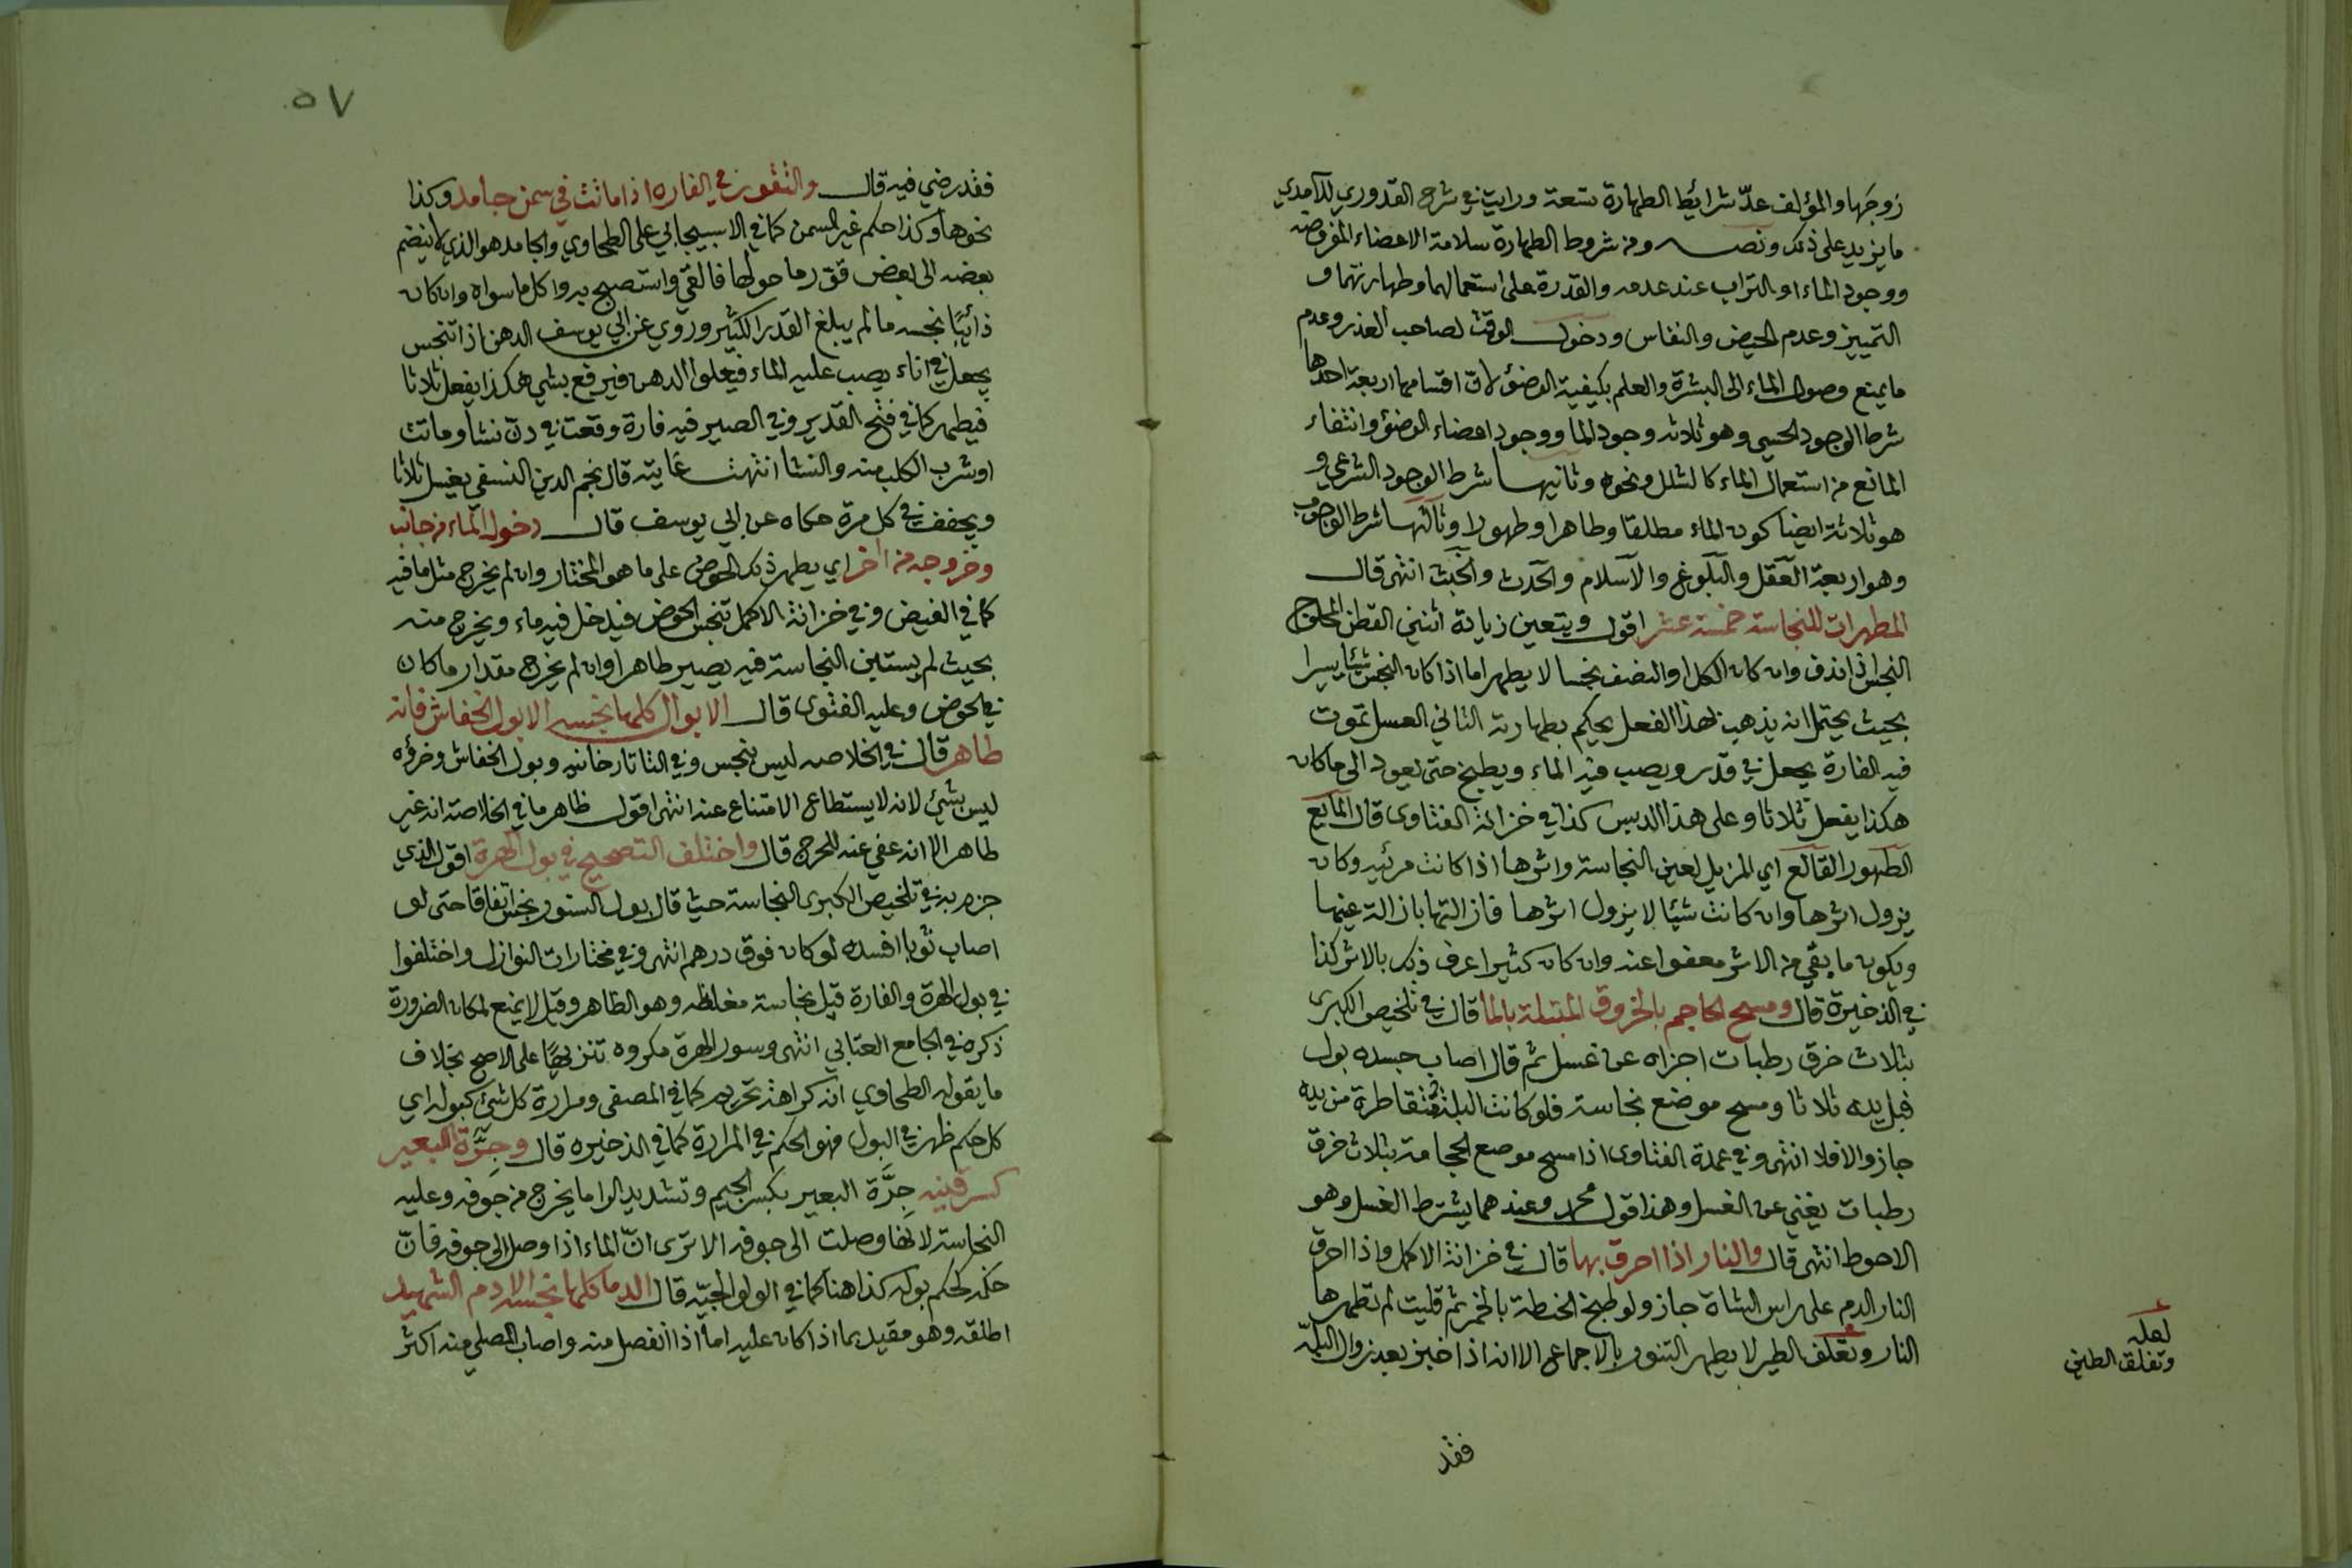 زوجها والمؤلف عدّ شرائط الطهارة تسعة ورايت في شرح القدوري للآمدي
ما يزيد على ذلك ونصه ومن شروط الطهارة سلامة الاعضاء المفروضه
ووجود الماء او التراب عند عدمه والقدرة على استعمالهما وطهارتهما و
التمييز وعدم الحيض والنفاس ودخول الوقت لصاحب العذر وعدم
ما يمنع وصول الماء الى البشرة والعلم بكيفية الوضؤ لان اقسامها اربعة احدها
شرط الوجود الحسي وهو ثلاثه وجود الما ووجود اعضاء الوضؤ وانتفاء
المانع من استعمال الماء كالشلل ونحوه وثانيها شرط الوجود الشرعي و
هو ثلاثة ايضا كون الماء مطلقا وطاهرا وطهورا وثالثها شرط الوجوب
وهو اربعة العقل والبلوغ والاسلام والحدث والخبث انتهى قال
المطهرات للنجاسة خمسة عشر اقول ويتعين زيادة اثنين القطن المحلوج
النجس اذا ندف وان كان الكل او النصف نجسا لا يطهر اما اذا كان النجس شيئا يسيرا
بحيث يحتمل انه يذهب بهذا الفعل يحكم بطهارته الثاني العسل تموت
فيه الفارة يجعل في قدر ويصب فيه الماء ويطبخ حتى يعود الى ما كان
هكذا يفعل ثلاثا وعلى هذا الدبس كذا في خزانة الفتاوى قال المايع
الطهور القالع اي المزيل لعين النجاسة واثرها اذا كانت مرئيه وكان
يزول اثرها وان كانت شيئا لا يزول اثرها فازالتها بازالة عينها
ويكون ما بقي من الاثر معفوا عنه وان كان كثيرا عرف ذلك بالاثر كذا
في الذخيرة قال ومسح المحاجم بالخروق المبتلة بالما قال في تلخيص الكبرى
بثلاث خرق رطبات اجزاه عن غسل ثم قال اصاب جسده بول
فبل يده ثلاثا ومسح موضع نجاسة فلو كانت البلة متقاطرة من يده
جاز والا فلا انتهى وفي عمدة الفتاوى اذا مسح موضع الحجامة بثلاث خرق
رطبات يغني عن الغسل وهذا قول محمد وعندهما يشترط الغسل وهو
الاحوط انتهى قال والنار اذا احرق بها قال في خزانة الاكمل واذا احرق
النار الدم على راس الشاة جاز ولو طبخ الحنطة بالخمر ثم قليت لم تطهرها
النار وتعلف الطير لا يطهر التنور بالاجماع الا انه اذا خبز بعد زوال البلة
لعله
وتغلق الطين
فقد
٥٧
فقد رضي فيه قال والتقور في الفاره اذا ماتت في سمن جامد وكذا
نحوها وكذا حكم غير السمن كما في الاسبيجابي على الطحاوي والجامد هو الذي لا ينضم
بعضه الى بعض فقور ما حولها فالقي واستصبح به واكل ما سواه وان كان
ذائبا نجسه ما لم يبلغ القدر الكثير وروي عن ابي يوسف الدهن اذا تنجس
يجعل في اناء يصب عليه الماء فيعلوا الدهن فيرفع بشي هكذا يفعل ثلاثا
فيطهر كما في فتح القدير وفي الصيرفيه فارة وقعت في دن نشا وماتت
او شرب الكلب منه والنشا انتهت غايته قال نجم الدين النسفي يغسل ثلاثا
ويجفف في كل مرة حكاه عن ابي يوسف قال دخول الماء من جانب
وخروجه من اخر اي يطهر ذلك الحوض على ما هو المختار وان لم يخرج مثل ما فيه
كما في الفيض وفي خزانة الاكمل تنجس الحوض فيدخل فيه ماء ويخرج منه
بحيث لم يستبن النجاسة فيه يصير طاهرا وان لم يخرج مقدار ما كان
في الحوض وعليه الفتوى قال الابوال كلها نجسه الا بول الخفاش فانه
طاهر قال في الخلاصه ليس بنجس وفي التاتارخانيه وبول الخفاش وخرؤه
ليس بشئ لانه لا يستطاع الامتناع عنه انتهى اقول ظاهر ما في الخلاصة انه غير
طاهر الا انه عفي عنه للحرج قال واختلف التصحيح في بول الهرة اقول الذي
جزم به في تلخيص الكبرى النجاسة حيث قال بول السنور نجس اتفاقا حتى لو
اصاب ثوبا افسده لو كان فوق درهم انتهى وفي مختارات النوازل واختلفوا
في بول الهرة والفارة قيل نجاسة مغلظه وهو الظاهر وقيل لا يمنع لمكان الضرورة
ذكره في الجامع العتابي انتهى وسور الهرة مكروه تنزيها على الاصح بخلاف
ما يقوله الطحاوي انه كراهة تحريم كما في المصفى ومرارة كل شئ كبوله اي
كل حكم ظهر في البول فهو الحكم في المرارة كما في الذخيره قال وجِرَّة البعير
كسرقينه جِرَّة البعير بكسر الجيم وتشديد الرا ما يخرج من جوفه وعليه
النجاسة لانها وصلت الى جوفه الا ترى انّ الماء اذا وصل الى جوفه فانّ
حكمه كحكم بوله كذا هنا كما في الولوالجيّه قال الدما كلها نجسه الا دم الشهيد
اطلقه وهو مقيد بما اذا كان عليه اما اذا انفصل منه واصاب المصلي منه اكثر